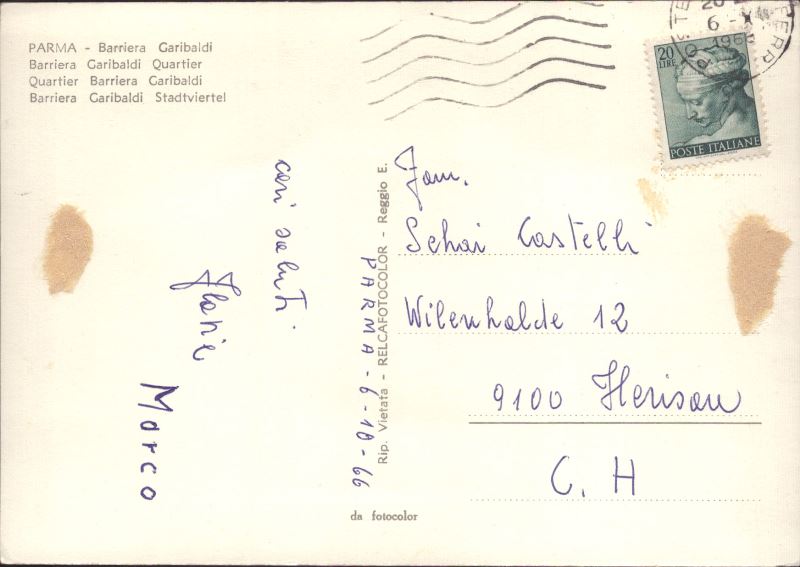 PARMA - Barriera Garibaldi
Barriera Garibaldi Quartier
Quartier Barriera Garibaldi
Barriera Garibaldi Stadtviertel
20
6 - X
1966
FERR
20
LIRE
POSTE ITALIANE
cari saluti
Marco
PARMA - 6-10-66
Rip. Vietata - RELCAFOTOCOLOR - Reggio E.
da fotocolor
Fam.
Schai Castelli
Wilenhalde 12
9100 Herisau
C. H